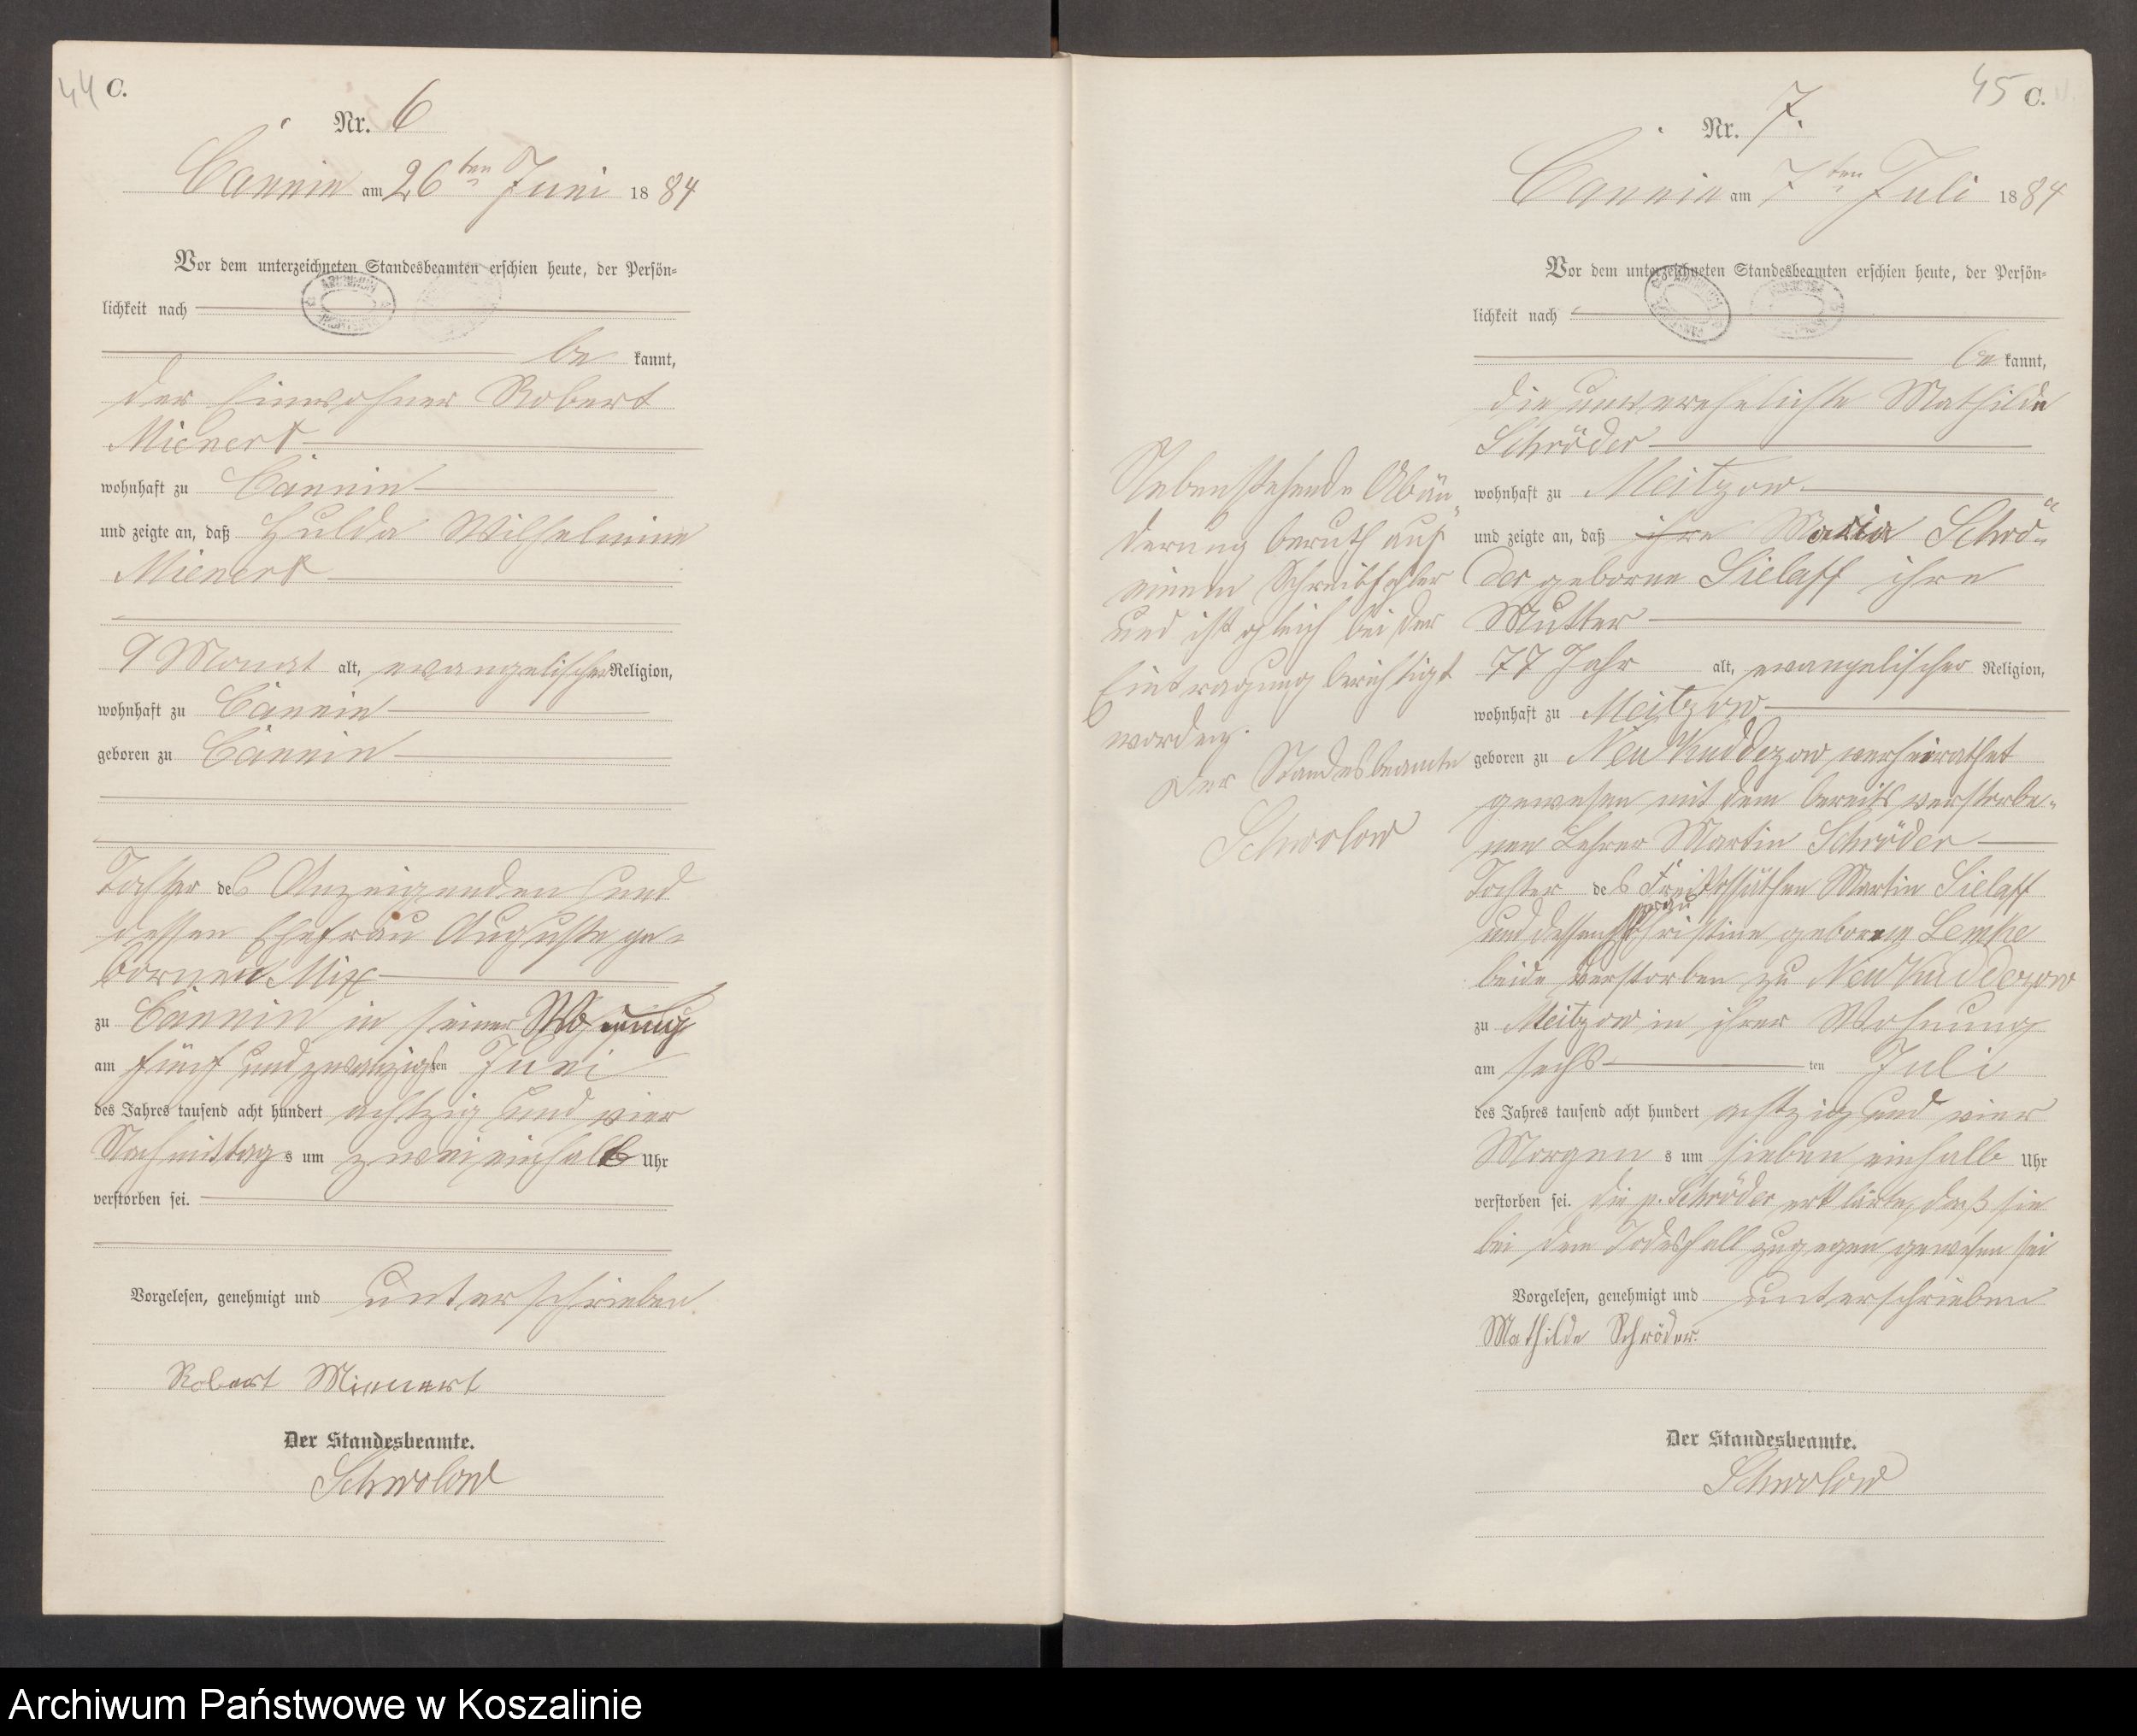 44 C.
Nr. 6
Cannin am 26ten Juni 1884
Vor dem unterzeichneten Standesbeamten erschien heute, der Persön-
lichkeit nach
be kannt,
der Einwohner Robert
Mienert
wohnhaft zu Cannin
und zeigte an, daß Hulda Wilhelmine
Mienert
9 Monat alt, evangelischer Religion,
wohnhaft zu Cannin
geboren zu Cannin
Tochter des Anzeigenden und
dessen Ehefrau Auguste ge-
bornen Mix
zu Cannin in seiner Wohnung
am fünf und zwanzigsten Juni
des Jahres tausend acht hundert achtzig und vier
Nachmittags um zwei einhalb Uhr
verstorben sei.
Vorgelesen, genehmigt und unterschrieben
Robert Mienert
Der Standesbeamte.
Schwolow
45 C.
Nr. 7.
Cannin am 7ten Juli 1884
Vor dem unterzeichneten Standesbeamten erschien heute, der Persön-
lichkeit nach
be kannt,
die unverehelichte Mathilde
Schröder
wohnhaft zu Meitzow
und zeigte an, daß ihre Maria Schrö-
der geborne Sielaff ihre
Mutter
77 Jahr alt, evangelischer Religion,
wohnhaft zu Meitzow
geboren zu Neu Kuddezow verheirathet
gewesen mit dem bereits verstorbe-
nen Lehrer Martin Schröder
Tochter des Martin Sielaff
und dessen Frau Christine geborene Lemke
beide verstorben zu Neu Kuddezow
zu Meitzow in ihrer Wohnung
am sechsten Juli
des Jahres tausend acht hundert achtzig und vier
Morgens um sieben einhalb Uhr
verstorben sei. Die p. Schröder erklärte, daß sie
bei dem Todesfall zugegen gewesen sei
Vorgelesen, genehmigt und unterschrieben
Mathilde Schröder.
Der Standesbeamte.
Schwolow
Nebenstehende Abän-
derung beruth auf
einem Schreibfehler
und ist gleich bei der
Eintragung berichtigt
worden.
Der Standesbeamte
Schwolow
Archiwum Państwowe w Koszalinie